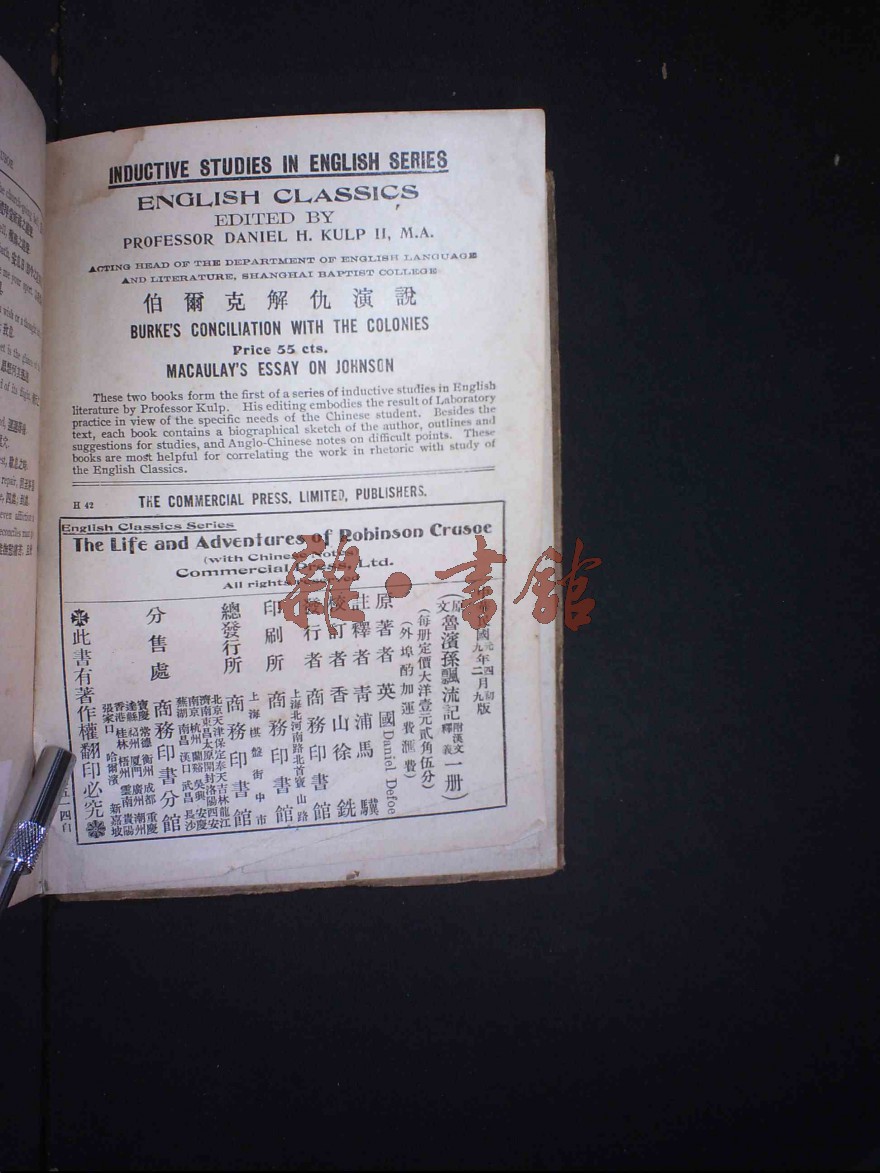 INDUCTIVE STUDIES IN ENGLISH SERIES
ENGLISH CLASSICS
EDITED BY
PROFESSOR DANIEL H. KULP II, M.A.
ACTING HEAD OF THE DEPARTMENT OF ENGLISH LANGUAGE
AND LITERATURE, SHANGHAI BAPTIST COLLEGE
伯爾克解仇演說
BURKE'S CONCILIATION WITH THE COLONIES
Price 55 cts.
MACAULAY'S ESSAY ON JOHNSON
These two books form the first of a series of inductive studies in English
literature by Professor Kulp. His editing embodies the result of Laboratory
practice in view of the specific needs of the Chinese student. Besides the
text, each book contains a biographical sketch of the author, outlines and
suggestions for studies, and Anglo-Chinese notes on difficult points. These
books are most helpful for correlating the work in rhetoric with study of
the English Classics.
H 42 THE COMMERCIAL PRESS, LIMITED, PUBLISHERS.
English Classics Series
The Life and Adventures of Robinson Crusoe
(with Chinese Notes)
Commercial Press, Ltd.
All rights
雜·書館
國九年二月九版
(原文魯濱孫飄流記附漢文釋義一册)
(每册定價大洋壹元貳角伍分)
(外埠酌加運費滙費)
原著者 英國Daniel Defoe
註釋者 青浦馬驥
校訂者 香山徐銑
發行者 商務印書館
上海北河南路北首寶山路
印刷所 商務印書館
上海棋盤街中市
總發行所 商務印書館
北京天津保定奉天吉林龍江
濟南東昌太原開封洛陽西安
南京杭州蘭谿吳興安慶
蕪湖南昌漢口武昌長沙
分售處 商務印書分館
寶慶常德衡州成都重慶
達縣福州廈門廣州潮州
香港桂林梧州雲南貴陽
張家口哈爾濱新嘉坡
此書有著作權翻印必究